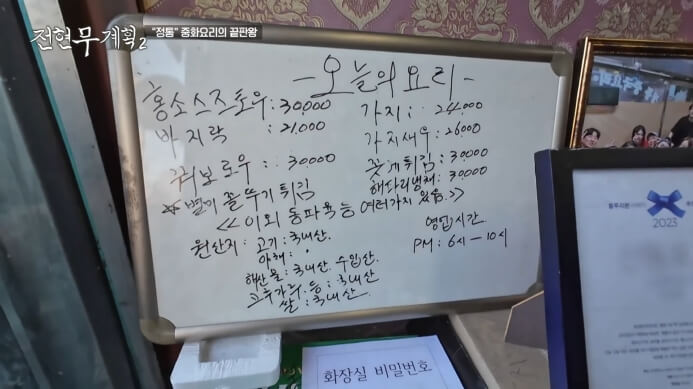 전현무계획2
"정통" 중화요리의 끝판왕
- 오늘의 요리 -
홍소스즈토우 : 30,000
바지락 : 21,000
꿔보로우 : 30000
☆ 별미 꼴뚜기 튀김
가지 : 24,000
가지새우 : 26000
꽃게튀김 : 30000
해파리냉채 : 30000
<< 이외 동파육등 여러가지 있음 >>
원산지 : 고기 : 국내산.
야채 : 〃
해산물 : 국내산. 수입산.
고추가루 등 : 국내산
쌀 : 국내산
영업시간
PM : 6시 - 10시
화장실 비밀번호
블루리본
2023